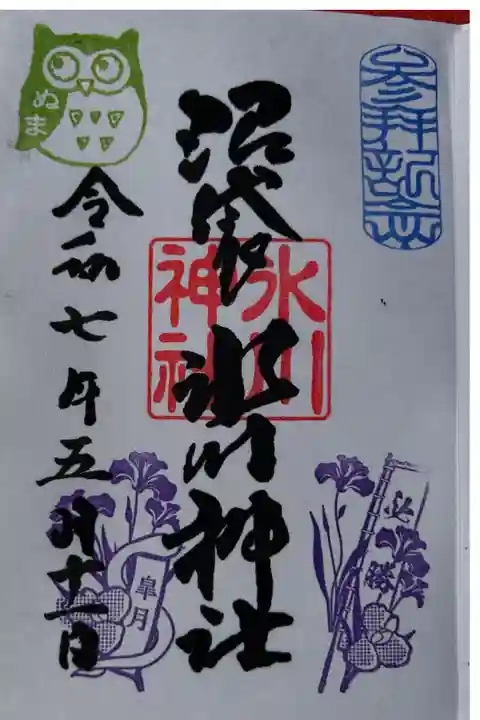 参拝記念
沼袋 氷川神社
氷川
神社
令和七年五月十一日
ぬま
必勝
皐月